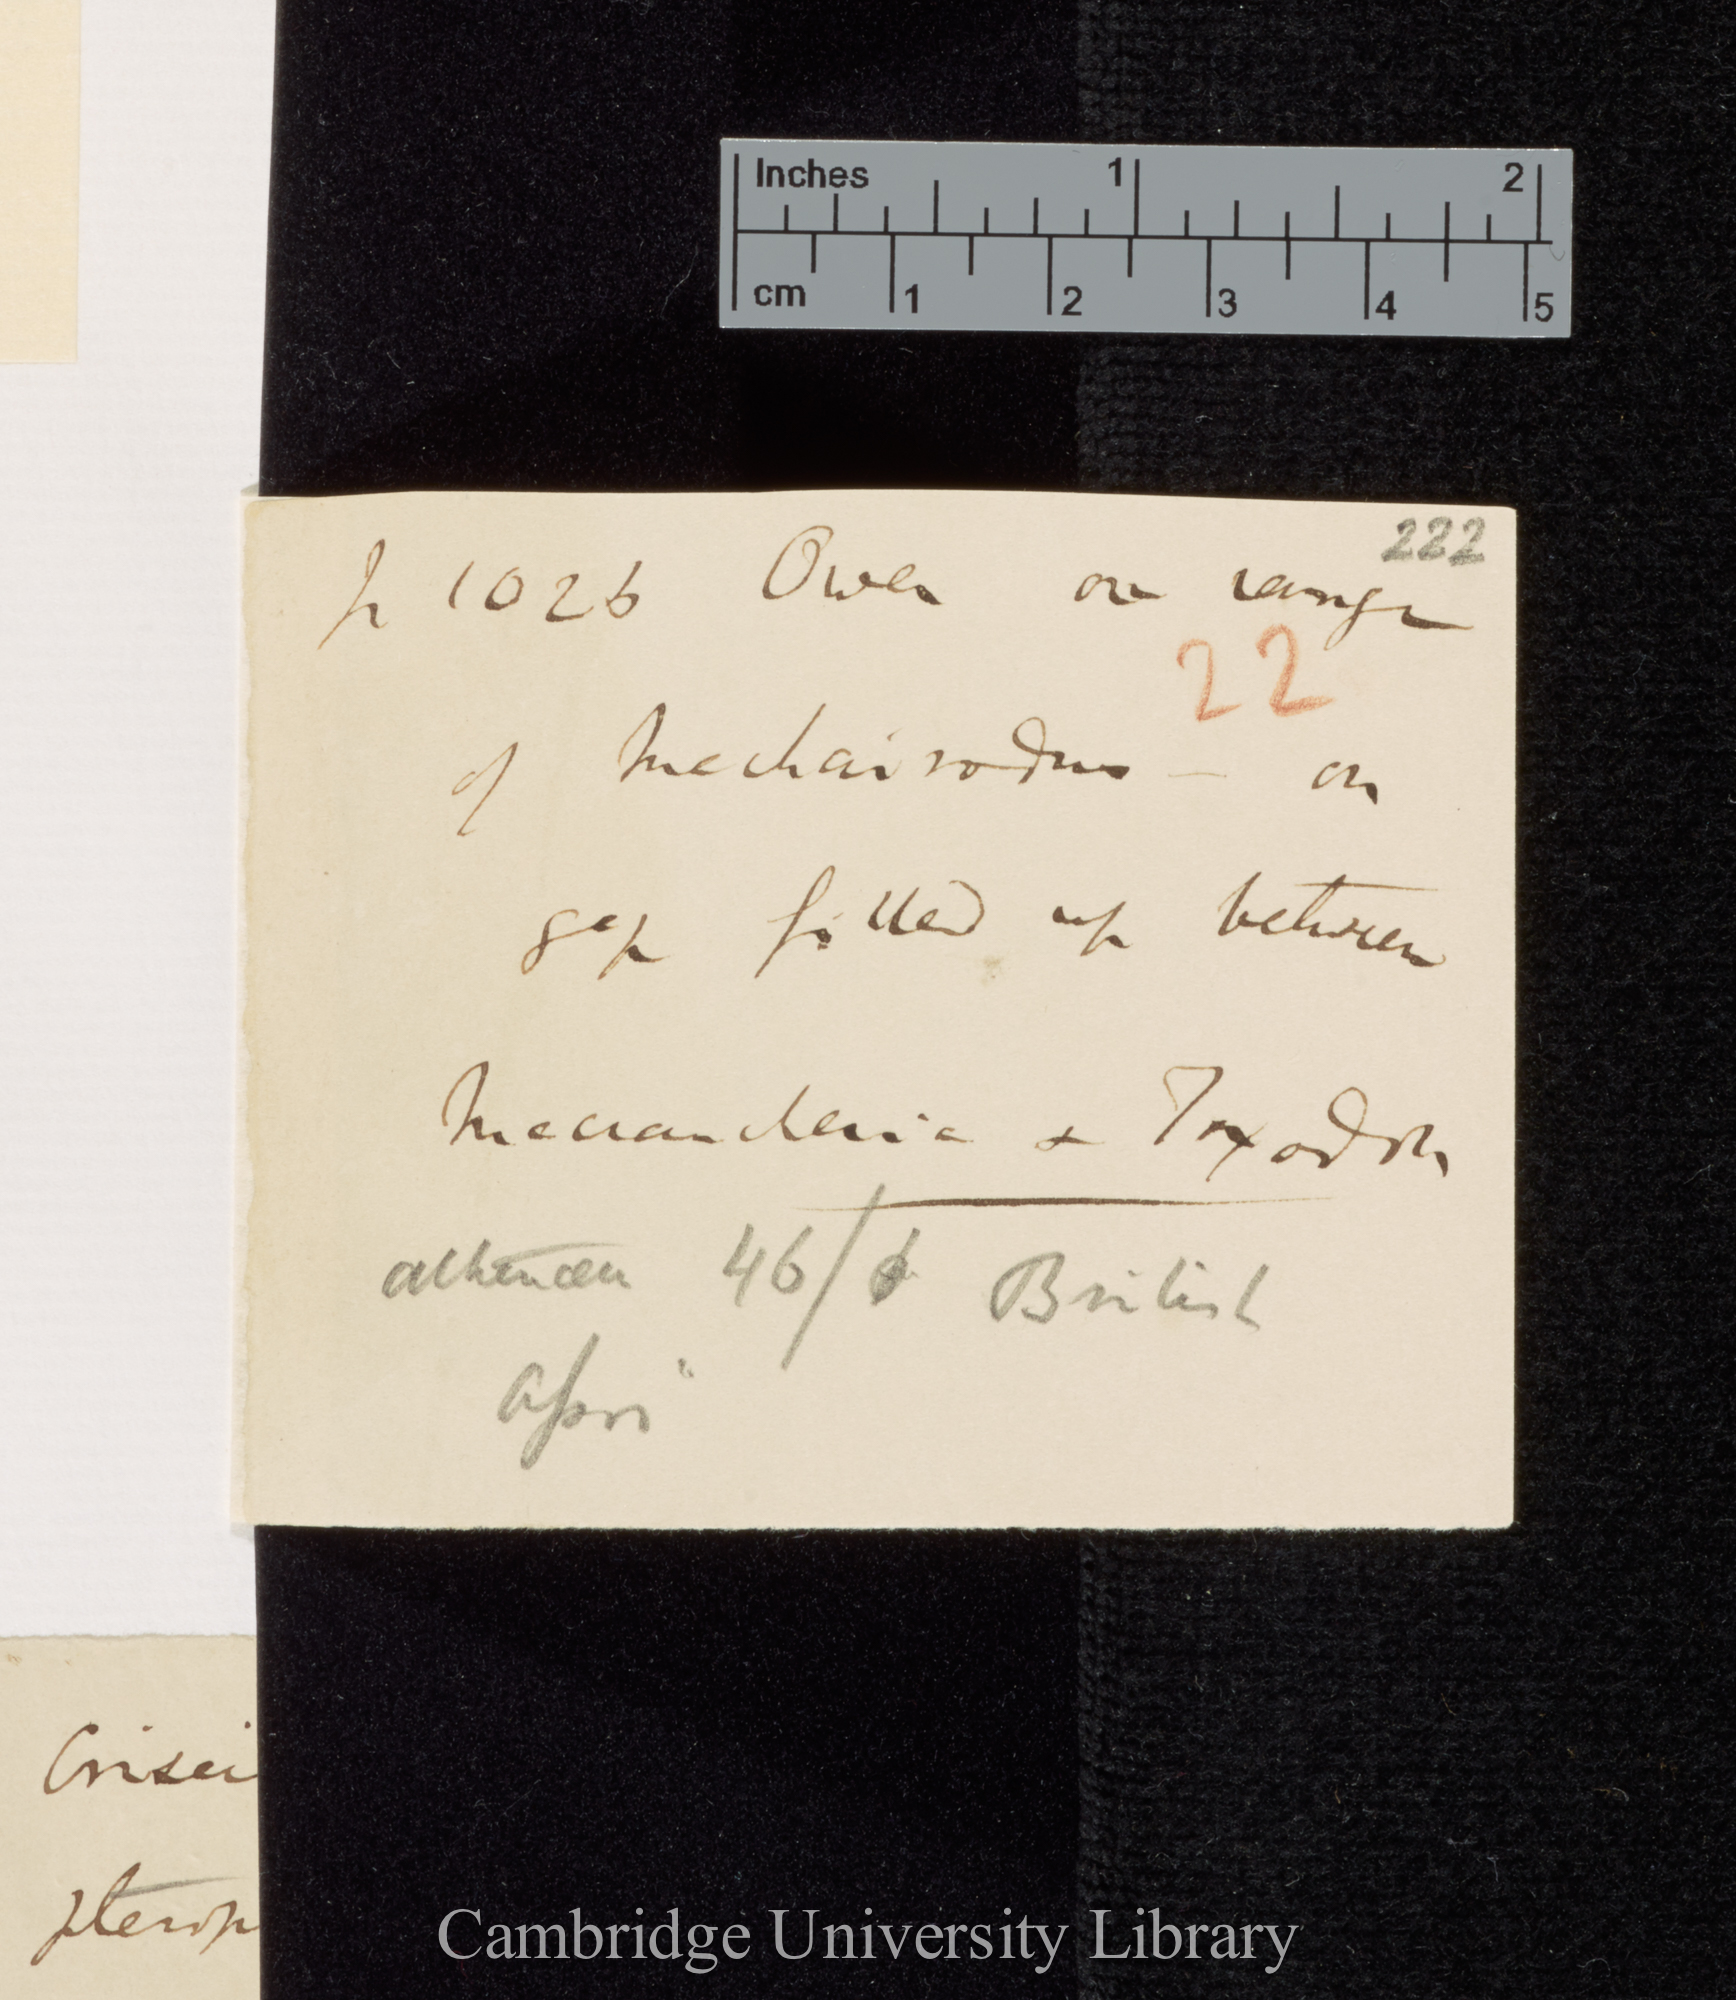 Inches 1 2
cm 1 2 3 4 5
222
p 1026 Owen on range
22
of Machairodus — on
gap filled up between
Macrauchenia & Toxodon
Athenæu 46/6 British
Assoc
Crisei
pterop
Cambridge University Library